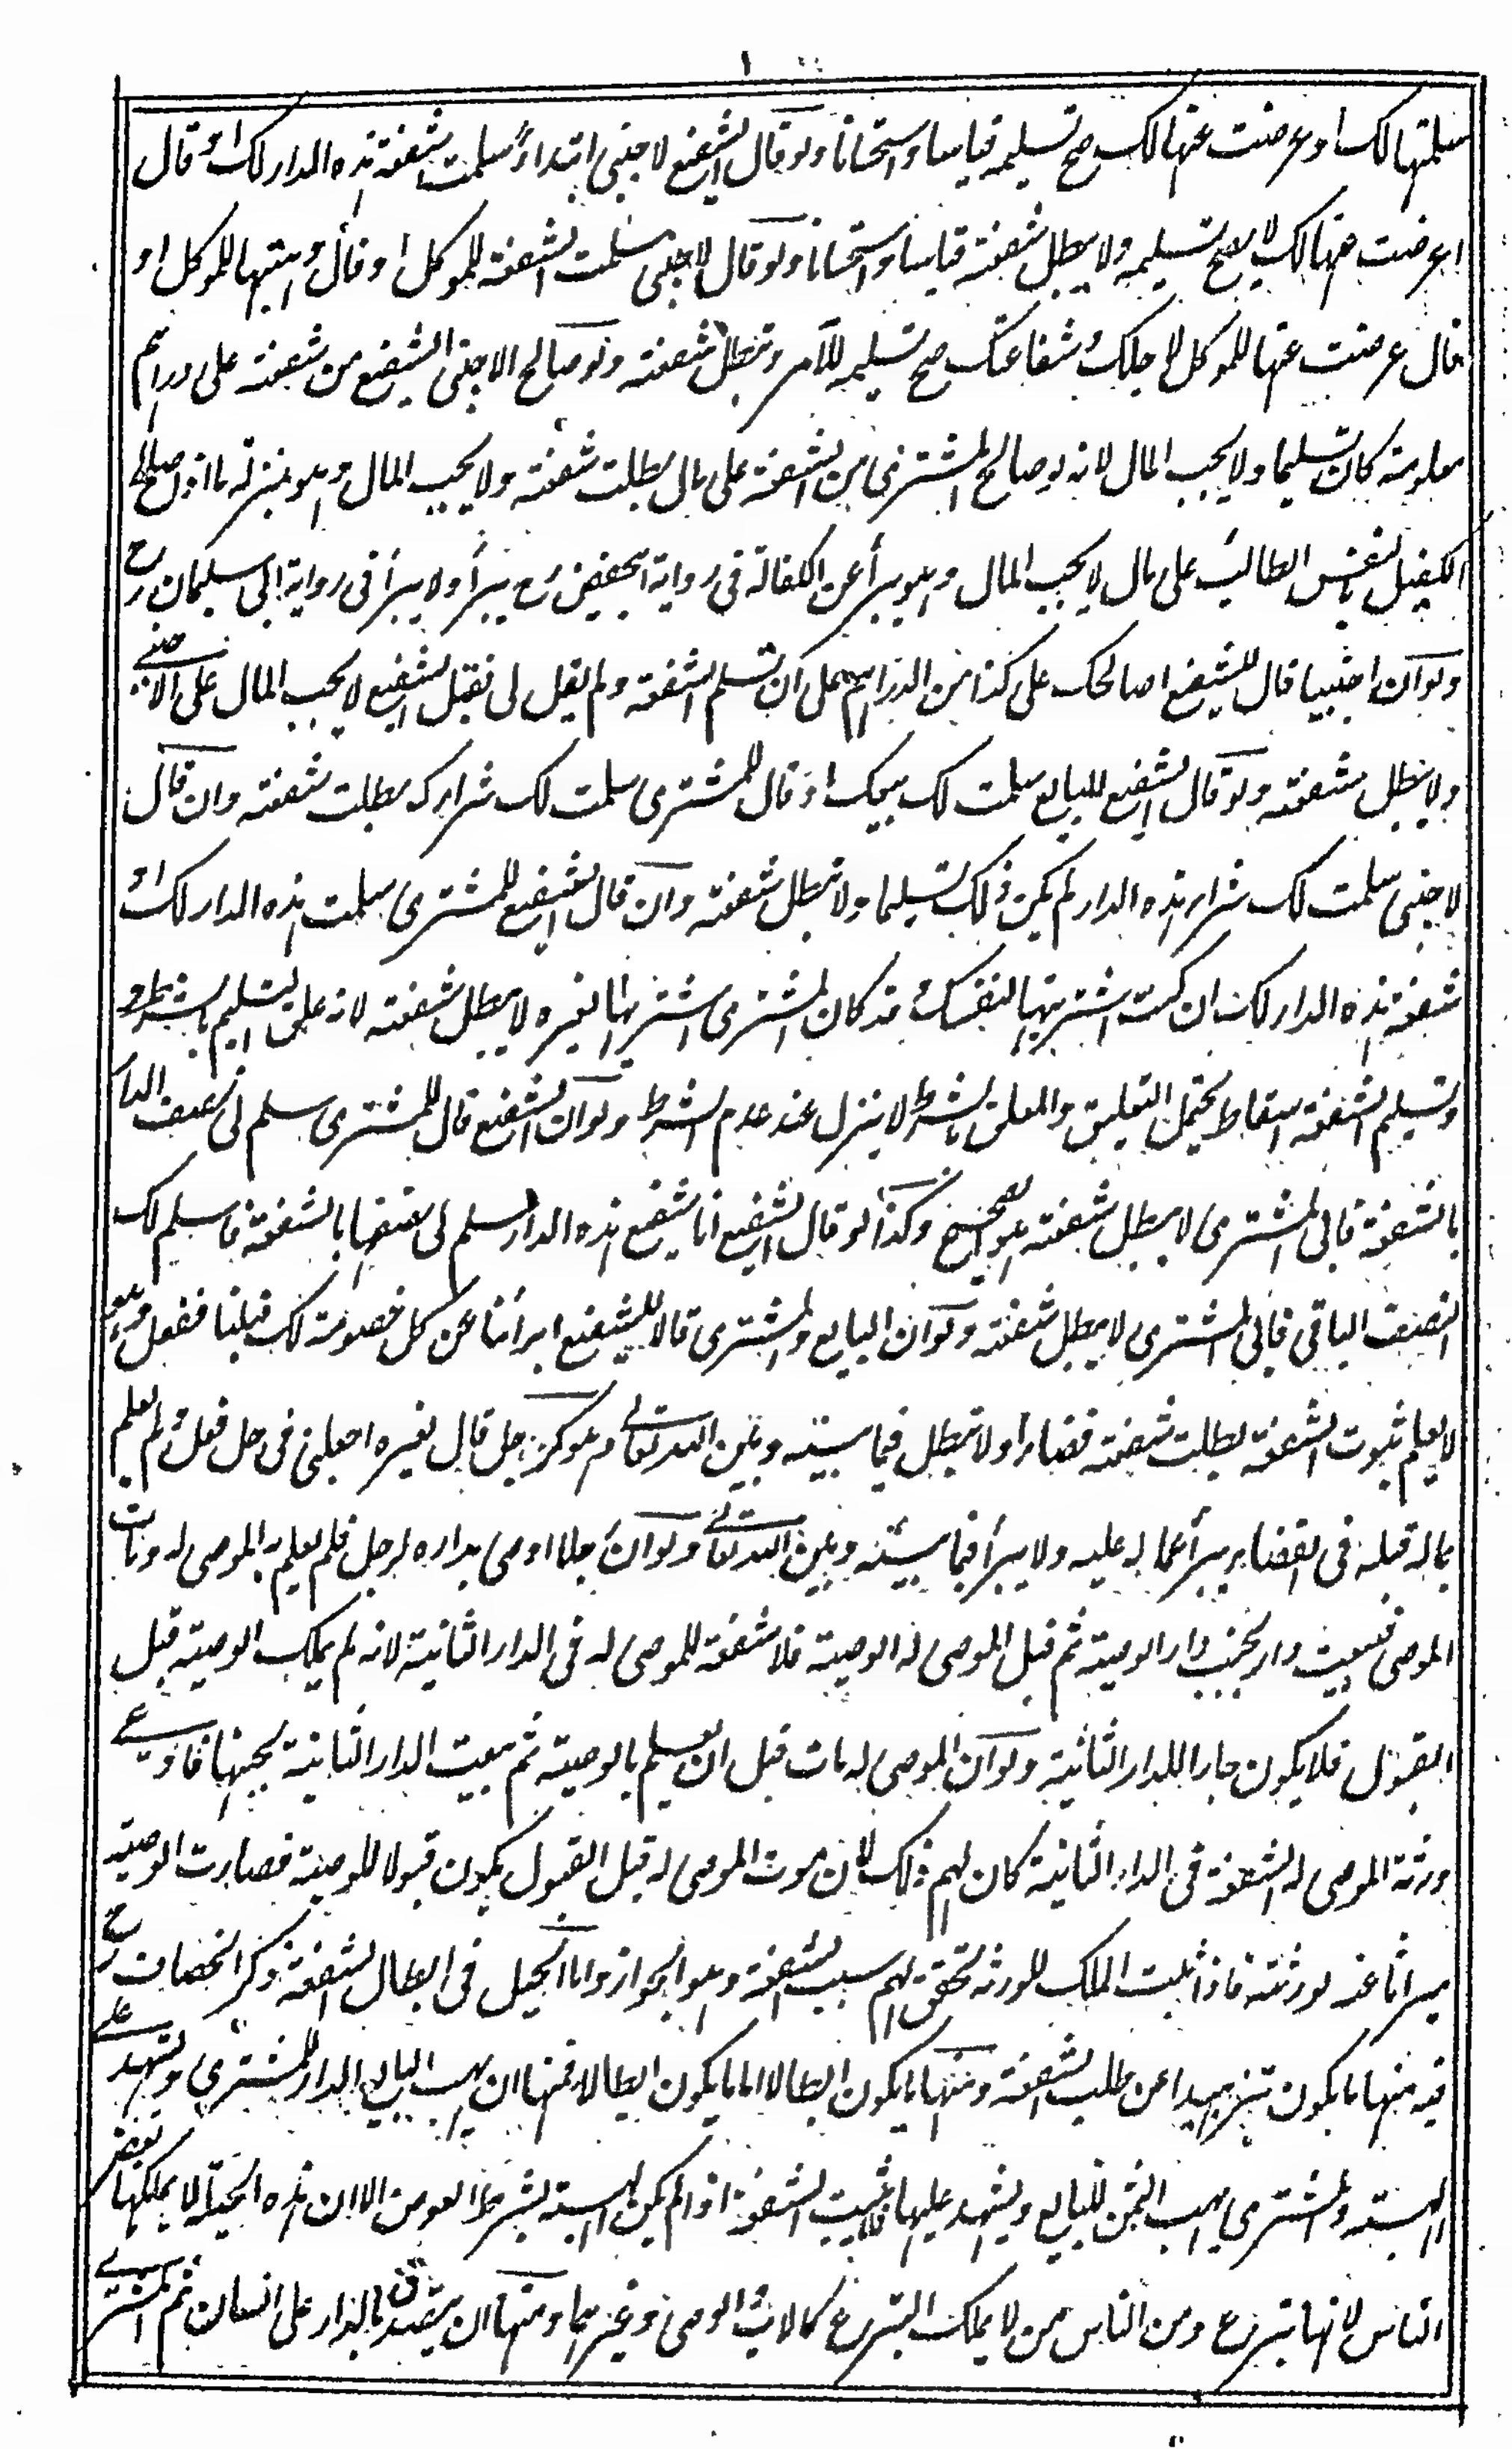 ١
سلمتها لك او عرضت عنها لك صح تسليمه قياسا واستحسانا ولو قال الشفيع لاجنبى ابتداءً سلمت شفعة هذه الدار لك او قال
اعرضت عنها لك لا يصح تسليمه ولا يبطل شفعته قياسا واستحسانا ولو قال لاجنبى سلمت الشفعة للموكل او قال وهبتها للموكل او
قال عرضت عنها للموكل لاجلك وشفاعتك صح تسليمه للآمر وتبطل شفعته ولو صالح الاجنبى الشفيع من شفعته على دراهم
معلومة كان تسليما ولا يجب المال لانه لو صالح المشترى من الشفعة على مال بطلت شفعته ولا يجب المال وهو بمنزلة ما اذا صالح
الكفيل بالنفس الطالب على مال لا يجب المال وهو يبرأ عن الكفالة فى رواية ابى حفص رح يبرأ ولا يبرأ فى رواية ابى سليمان رح
ولو ان اجنبيا قال للشفيع اصالحك على كذا من الدراهم على ان تسلم الشفعة ولم يقل لى فقبل الشفيع لا يجب المال على الاجنبى
ولا يبطل شفعته ولو قال الشفيع للبايع سلمت لك بيعك او قال للمشترى سلمت لك شراءك بطلت شفعته وان قال
لاجنبى سلمت لك شراء هذه الدار لم يكن ذلك تسليما ولا تبطل شفعته وان قال الشفيع للمشترى سلمت هذه الدار لك او
شفعة هذه الدار لك ان كنت اشتريتها لنفسك وقد كان المشترى اشتراها لغيره لا يبطل شفعته لانه علق التسليم بالشرط و
وتسليم الشفعة اسقاط يحتمل التعليق والمعلق بالشرط لا ينزل عند عدم الشرط ولو ان الشفيع قال للمشترى سلم لى نصف الدار
بالشفعة فابى المشترى لا يبطل شفعته هو الصحيح وكذا لو قال الشفيع انا شفيع هذه الدار سلم لى نصفها بالشفعة فاسلم لك
النصف الباقى فابى المشترى لا يبطل شفعته ولو ان البايع والمشترى قالا للشفيع ابرأنا عن كل خصومة لك قبلنا ففعل وهو
لا يعلم ثبوت الشفعة بطلت شفعته قضاءً ولا تبطل فيما بينه وبين الله تعالى وهو كرجل قال لغيره اجعلنى فى حل ففعل ولم يعلم
بماله قبله فى القضاء يبرأ عما له عليه ولا يبرأ فيما بينه وبين الله تعالى ولو ان رجلا اوصى بداره لرجل فلم يعلم به الموصى له ومات
الموصى فبيعت دار بجنب دار الوصية ثم قبل الموصى له الوصية فلا شفعة للموصى له فى الدار الثانية لانه لم يملك الوصية قبل
القبول فلا يكون جارا للدار الثانية ولو ان الموصى له مات قبل ان يعلم بالوصية ثم بيعت الدار الثانية بجنبها فادعى
ورثة الموصى له الشفعة فى الدار الثانية كان لهم ذلك لان موت الموصى له قبل القبول يكون قبولا للوصية فصارت الوصية
ميراثا عنه لورثته فاذا ثبت الملك للورثة تحقق لهم سبب الشفعة وهو الجوار واما الحيل فى ابطال الشفعة ذكر الخصاف رح
فيه منها ما يكون تزهيدا عن طلب الشفعة ومنها ما يكون ابطالا اما ما يكون ابطالا فمنها ان يهب البايع الدار للمشترى ويشهد على
الهبة والمشترى يهب الثمن للبايع ويشهد عليها فلا يثبت الشفعة اذا لم يكن الهبة بشرط العوض الا ان هذه الحيلة لا يملكها بعض
الناس لانها تبرع ومن الناس من لا يملك التبرع كالاب والوصى وغيرهما ومنها ان يتصدق بالدار على انسان ثم المشترى